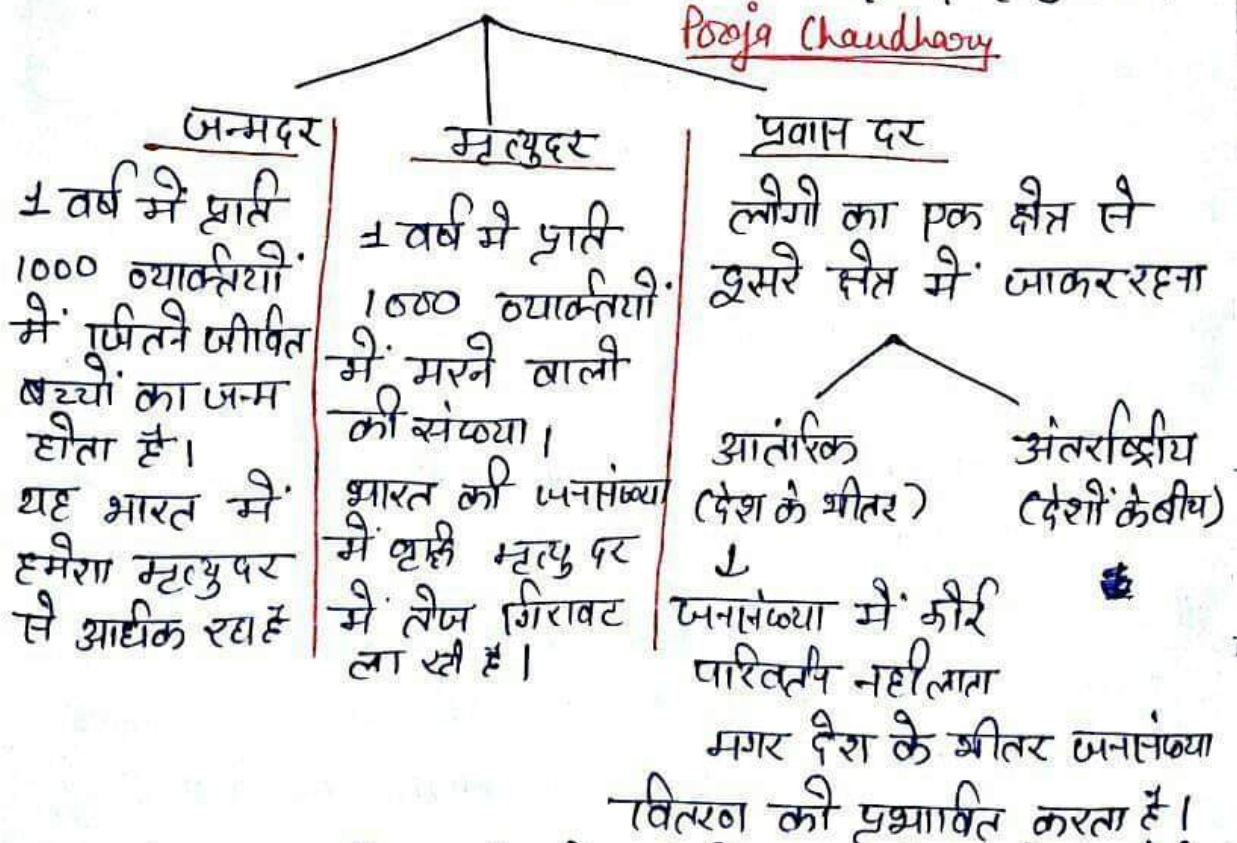 Pooja Chaudhary
जन्मदर
1 वर्ष में प्रति
1000 व्यक्तियों
में जितने जीवित
बच्चों का जन्म
होता है।
यह भारत में
हमेशा मृत्यु दर
से अधिक रहा है
मृत्युदर
1 वर्ष मे प्रति
1000 व्यक्तियों
में मरने वालो
की संख्या।
भारत की जनसंख्या
में मृत्यु दर
में तेज गिरावट
ला रही है।
प्रवास दर
लोगो का एक क्षेत्र से
दूसरे क्षेत्र में जाकर रहना
आतंरिक
(देश के भीतर)
↓
जनसंख्या में कोई
परिवर्तन नही लाता
मगर देश के भीतर जनसंख्या
वितरण को प्रभावित करता है।
अंतर्राष्ट्रीय
(देशों के बीच)